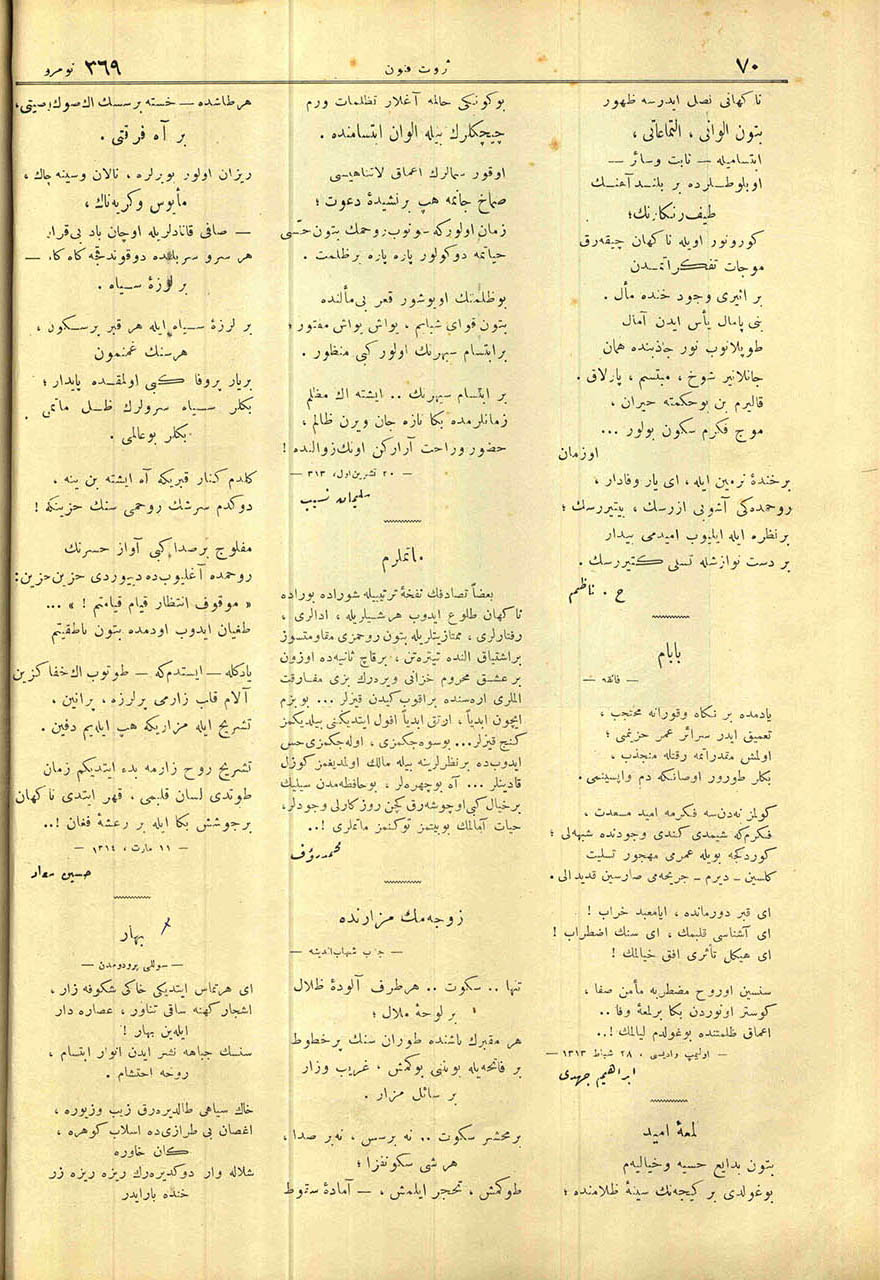 ٧٠
ثروت فنون
نومرو ٣٦٩
ناكهانى نصل ايدرسه ظهور
بتون الوانى ، التماعاتى ،
ابتساميله — ثابت وسائر —
اوبلوطلرده بر بلند آهنك
طيف رنكارنك؛
كورونور اويله ناكهان چيقه‌رق
موجات تفكراتمدن
بر اثيرى وجود خنده مأل .
بنى پامال يأس ايدن آمال
طوپلانوب نور جاذبنده همان
جانلانير شوخ ، مبتسم ، پارلاق .
قاليرم بن بوحكمته حيران ،
موج فكرم سكون بولور ...
اوزمان
برخندهٔ نرمين ايله ، اى يار وفادار ،
روحمده‌كى آشوبى ازرسك ، بيتيررسك ؛
برنظره ايله ايليوب اميدمى بيدار
بر دست نوازشله تسلى كتيررسك .
ح . ناظم
بابام
— فائقه —
يادمده بر نكاه وقورانه محتجب ،
تعميق ايدر سرائر عمر حزينمى ؛
اولمش مقدراتمه رقتله منجذب ،
بكلر طورور اوصانكه دم واپسينمى .
كولمز نه‌دن‌سه فكرمه اميد مسعدت ،
فكرم‌كه شيمدى كندى وجودنده شبهه‌لى ؛
كوردكجه بويله عمرمى مهجور تسليت
كلسين ـ ديرم ـ جريحه‌مى صارسين قديد الى .
اى قبر دورمانده ، ايامعبد خراب !
اى آشناسى قلبمك ، اى سنك اضطراب !
اى هيكل تأثرى افق خيالمك !
سنسين اوروح مضطربه مأمن صفا ،
كوستر اونوردن بكا برلمعهٔ وفا ..
اعماق ظلمتنده بوغولدم ليالمك !..
— اوليمپ واديسى ، ٢٨ شباط ١٣١٣ —
ابراهيم جهدى
لمعهٔ اميد
بتون بدايع حسيه وخياليه‌م
بوغولدى بر كيجه‌نك سينهٔ ظلامنده ؛
بوكونكى حالمه آغلار تظلمات ورم
چيچكلرك بيله الوان ابتسامنده .
اوقور سمالرك اعماق لاتناهيسى
صماخ جانمه هپ برنشيدهٔ دعوت ؛
زمان اولوركه ـ ونوب روحمك بتون حسى
حياتمه دوكولور پاره پاره برظلمت .
بوظلمتك اوبوشور قعر بى‌مألنده
بتون قواى شبابم ، يواش يواش مفتور ؛
برابتسام سپهرك اولور كبى منظور .
بر ابتسام سپهرك .. ايشته اك مظلم
زمانلرمده بكا تازه جان ويرن ظالم ،
حضور وراحت آراركن اونك زوالنده !
— ٢٠ تشرين اول، ٣١٣ —
سليمان نسيب
ماتملرم
بعضاً تصادفك نفخهٔ ترتيبيله شوراده بوراده
ناكهان طلوع ايدوب هرشيلريله ، ادالرى ،
رفتارلرى ، ممتازيتلريله بتون روحمزى مقاومتسوز
براشتياق النده تيتره‌تن ، برقاچ ثانيه‌ده اوزون
بر عشق محروم خزانى ويره‌رك بزى مفارقت
المالرى اره‌سنده براقوب كيدن قيزلر ... بوبزم
ايچون ابدياً ، ارتق ابدياً افول ايتديكنى بيلديكمز
كنج قيزلر... بوسوه‌جكمزى ، اوله‌جكمزى حس
ايدوب‌ده برنظرلرينه بيله مالك اولمديغمز كوزل
قادينلر ... آه بوچهره‌لر ، بوحافظه‌مدن سيليك
برخيال كبى‌اوچوشه‌رق كچن روزكارلى وجودلر،
حيات آمالمك بوبيتمز توكنمز ماتملرى !..
محمدرؤف
زوجه‌مك مزارنده
— جناب شهاب‌الدينه —
تنها .. سكوت .. هرطرف آلودهٔ ظلال
بر لوحهٔ ملال ؛
هر مقبرك باشنده طوران سنك پرخطوط
بر فاتحه‌يله بوينى بوكمش ، غريب وزار
بر سائل مزار .
برمحشر سكوت .. نه برسس ، نه‌بر صدا ،
هرشى سكونفزا ؛
طوكمش ، تحجر ايلمش ، — آمادهٔ سقوط
هرطاشده — خسته برسسك اك صوك اصيتى،
بر آه فرقتى .
ريزان اولور بويرلره ، نالان وسينه چاك ،
مأيوس وكريه‌ناك ،
— صافى قانادلريله اوچان باد بى‌قرار
هر سرو سربلنده دوقوندقجه كاه كاه —
بر لرزهٔ سياه .
بر لرزهٔ سياه ايله هر قبر برسكون ،
هرسنك غمنمون
بريار بروفا كبى اولمقده پايدار ؛
بكلر سياه سرولرك ظل ماتمى
بكلر بوعالمى .
كلدم كنار قبريكه آه ايشته بن ينه .
دوكدم سرشك روحمى سنك حزينكه !
مفلوج برصدا كبى آواز حسرتك
روحمده آغليوب‌ده دييوردى حزين حزين:
« موقوف انتظار قيام قيامتم ! » ...
طغيان ايدوب اودمده بتون ناطقيتم
يادكله — ايستدم‌كه — طوتوب اك خفا كزين
آلام قلب زارمى پرلرزه ، پرانين ،
تشريح ايله مزاريكه هپ ايله‌يم دفين .
تشريح روح زارمه بدء ايتديكم زمان
طوتدى لسان قلبمى . قهر ابتدى ناكهان
برجوشش بكا ايله بر رعشهٔ فغان !..
— ١١ مارت ، ١٣١٤ —
حسين سعاد
بهار
— سوللى پرودومدن —
اى هرتماس ايتديكى خاكى شكوفه زار ،
اشجار كهنه ساقى تناور ، عصاره دار
ايله‌ين بهار !
سنك جباهه نشر ايدن انوار ابتسام ،
روحه احتشام .
خاك سياهى طالديره‌رق زيب وزيوره ،
اغصان بى طرازى‌ده اسلاب كوهره ،
كان خاوره
شلاله وار دوكديره‌رك ريزه ريزه زر
خنده بارايدر